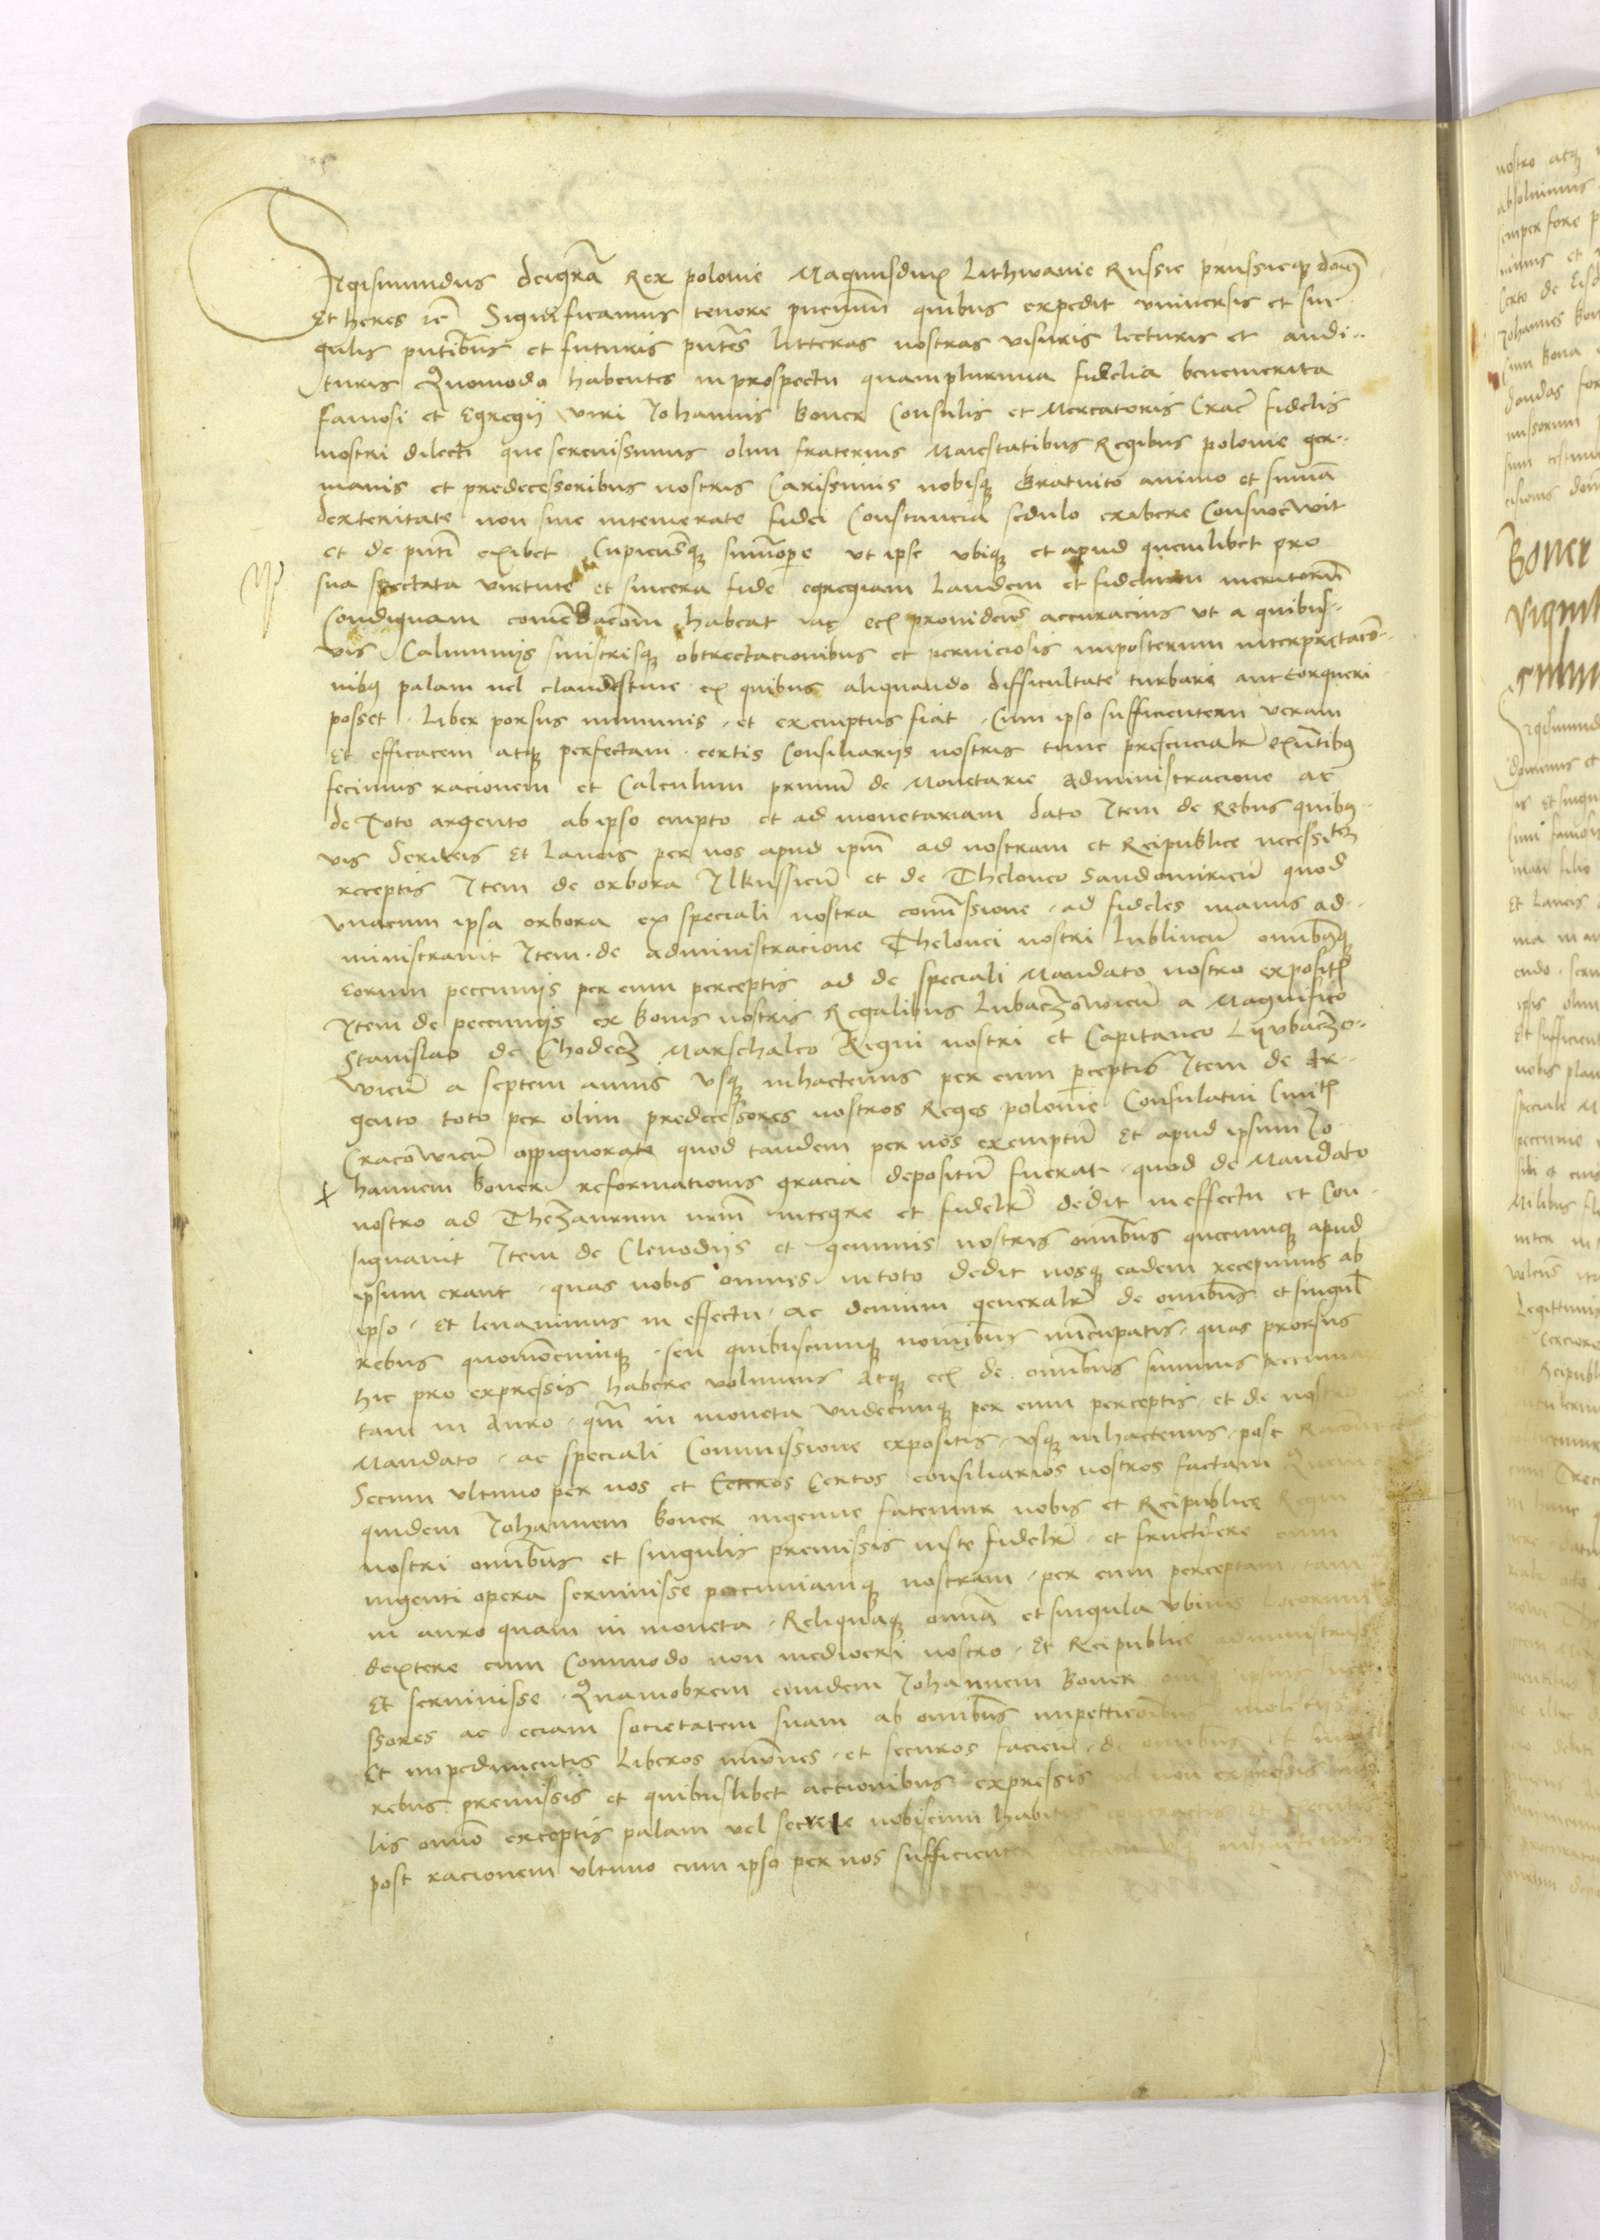 Sigismundus deigrã Rex polonie Magnusdux Lithwanie Russie prussieq; doñs
Et heres ⁊c̃ Significamus tenore pñciũm quibus expedit vniversis et sin
gulis pñtibus et futuris pñtes litteras nostras visuris lecturis et audi‥
turis Quomodo habentes inprospectu quamplurima fidelia benemerita
famosi et Egregij viri Johannis Boner Consulis et Mercatoris Crac̃ fidelis
nostri dilecti que serenissimis olim fraternis Maiestatibus Regibus polonie ger‥
manis et predecessoribus nostris Carissimis nobisq; Gratuito animo et summa
dexteritate non sine intemerate fidei Constancia sedulo exibere Consuewit
et de pñti exibet Cupiensq; summope ut ipse ubiq; et apud quemlibet pro
sua spectata virtute et sincera fide egregiam laudem et fidelium meritorũ
Condignam comẽdacõem habeat ac eci providens accuracius ut a quibus‥
vis Calumnijs sinistrisq; obtrectacionibus et perniciosis imposterum interpretacõ‥
nibus palam vel clandestine ex quibus aliquando difficultate turbari aut torqueri
posset Liber porsus immunis et exemptus fiat Cum ipso sufficientem veram
Et efficacem atq; perfectam certis Consiliarijs nostris tunc presencialr̃ exñtibus
fecimus racionem et Calculum primũ de Monetarie administracione ac
de toto argento ab ipso empto et ad monetariam dato Item de Rebus quibus‥
vis Sericeis Et Laneis per nos apud ipm̃ ad nostram et Reipublice necessitatem
receptis Item de orbora Ilkussien̄ et de Theloneo Sandomirien̄ quod
vnacum ipsa orbora ex speciali nostra comissione ad fideles manus ad‥
ministravit Item de administracione Thelonei nostri Lublinen̄ omnibusq;
Eorum peccunijs per eum perceptis ad de speciali Mandato nostro expositis
Item de peccunijs ex Bonis nostris Regalibus Lubaczowien̄ a Magnifico
Stanislao de Chodecz Marschalco Regni nostri et Capitaneo Lijvbaczo‥
wien̄ a septem annis vsq; inhactenus per eum perceptis Item de Ar‥
gento toto per olim predecessores nostros Reges polonie Consulatui Civit
Cracowien̄ oppignorate quod tandem per nos exemptũ Et apud ipsum Jo
hannem Boner reformationis gracia depositũ fuerat quod de Mandato
nostro ad Thezaurum nrm̃ integre et fidelr̃ dedit in effectu et Con‥
signavit Item de Clenodijs et gemmis nostris omnibus quecumq; apud
ipsum erant quas nobis omnes intoto dedit nosq; eadem recepimus ab
ipso Et levavimus in effectu Ac demum generalr̃ de omnibus et singul
rebus quomõcumq; seu quibuscumq; nominibus nũcupatis quas prorsus
hic pro expressis habere volumus Atq; eci de omnibus summis peccunia
tam in Auro qm̃ in moneta undecumq; per eum perceptis et de nostro
Mandato ac speciali Commissione expositis vsq; inhactenus post
Secum vltimo per nos et Ceteros Certos consiliarios nostros factam Quem
quidem Johannem Boner ingenue fatemur nobis et Reipublice Regni
nostri omnibus et singulis premissis iuste fidelr̃ et fructifere cum
ingenti opera servivisse peccuniamq; nostram per eum perceptam tam
in auro quam in moneta Reliquaq; omnia et singula vbivis locorum
dextere cum Commodo non mediocri nostro Et Reipublice administrasse
Et servivisse Quamobrem eundem Johannem Boner
ssores ac eciam societatem suam ab omnibus impetticionibus molestijs
Et impedimentis Liberos immunes et securos facien̄ de omnibus et
rebus premissis et quibuslibet actionibus expressis vel non expressis
lis omnino exceptis palam vel secrete nobiscum habitis contractis et
post racionem vltimo cum ipso per nos sufficienter